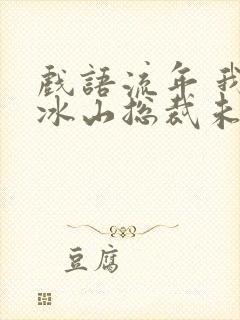 戲語流年我
冰山总裁未
豆腐